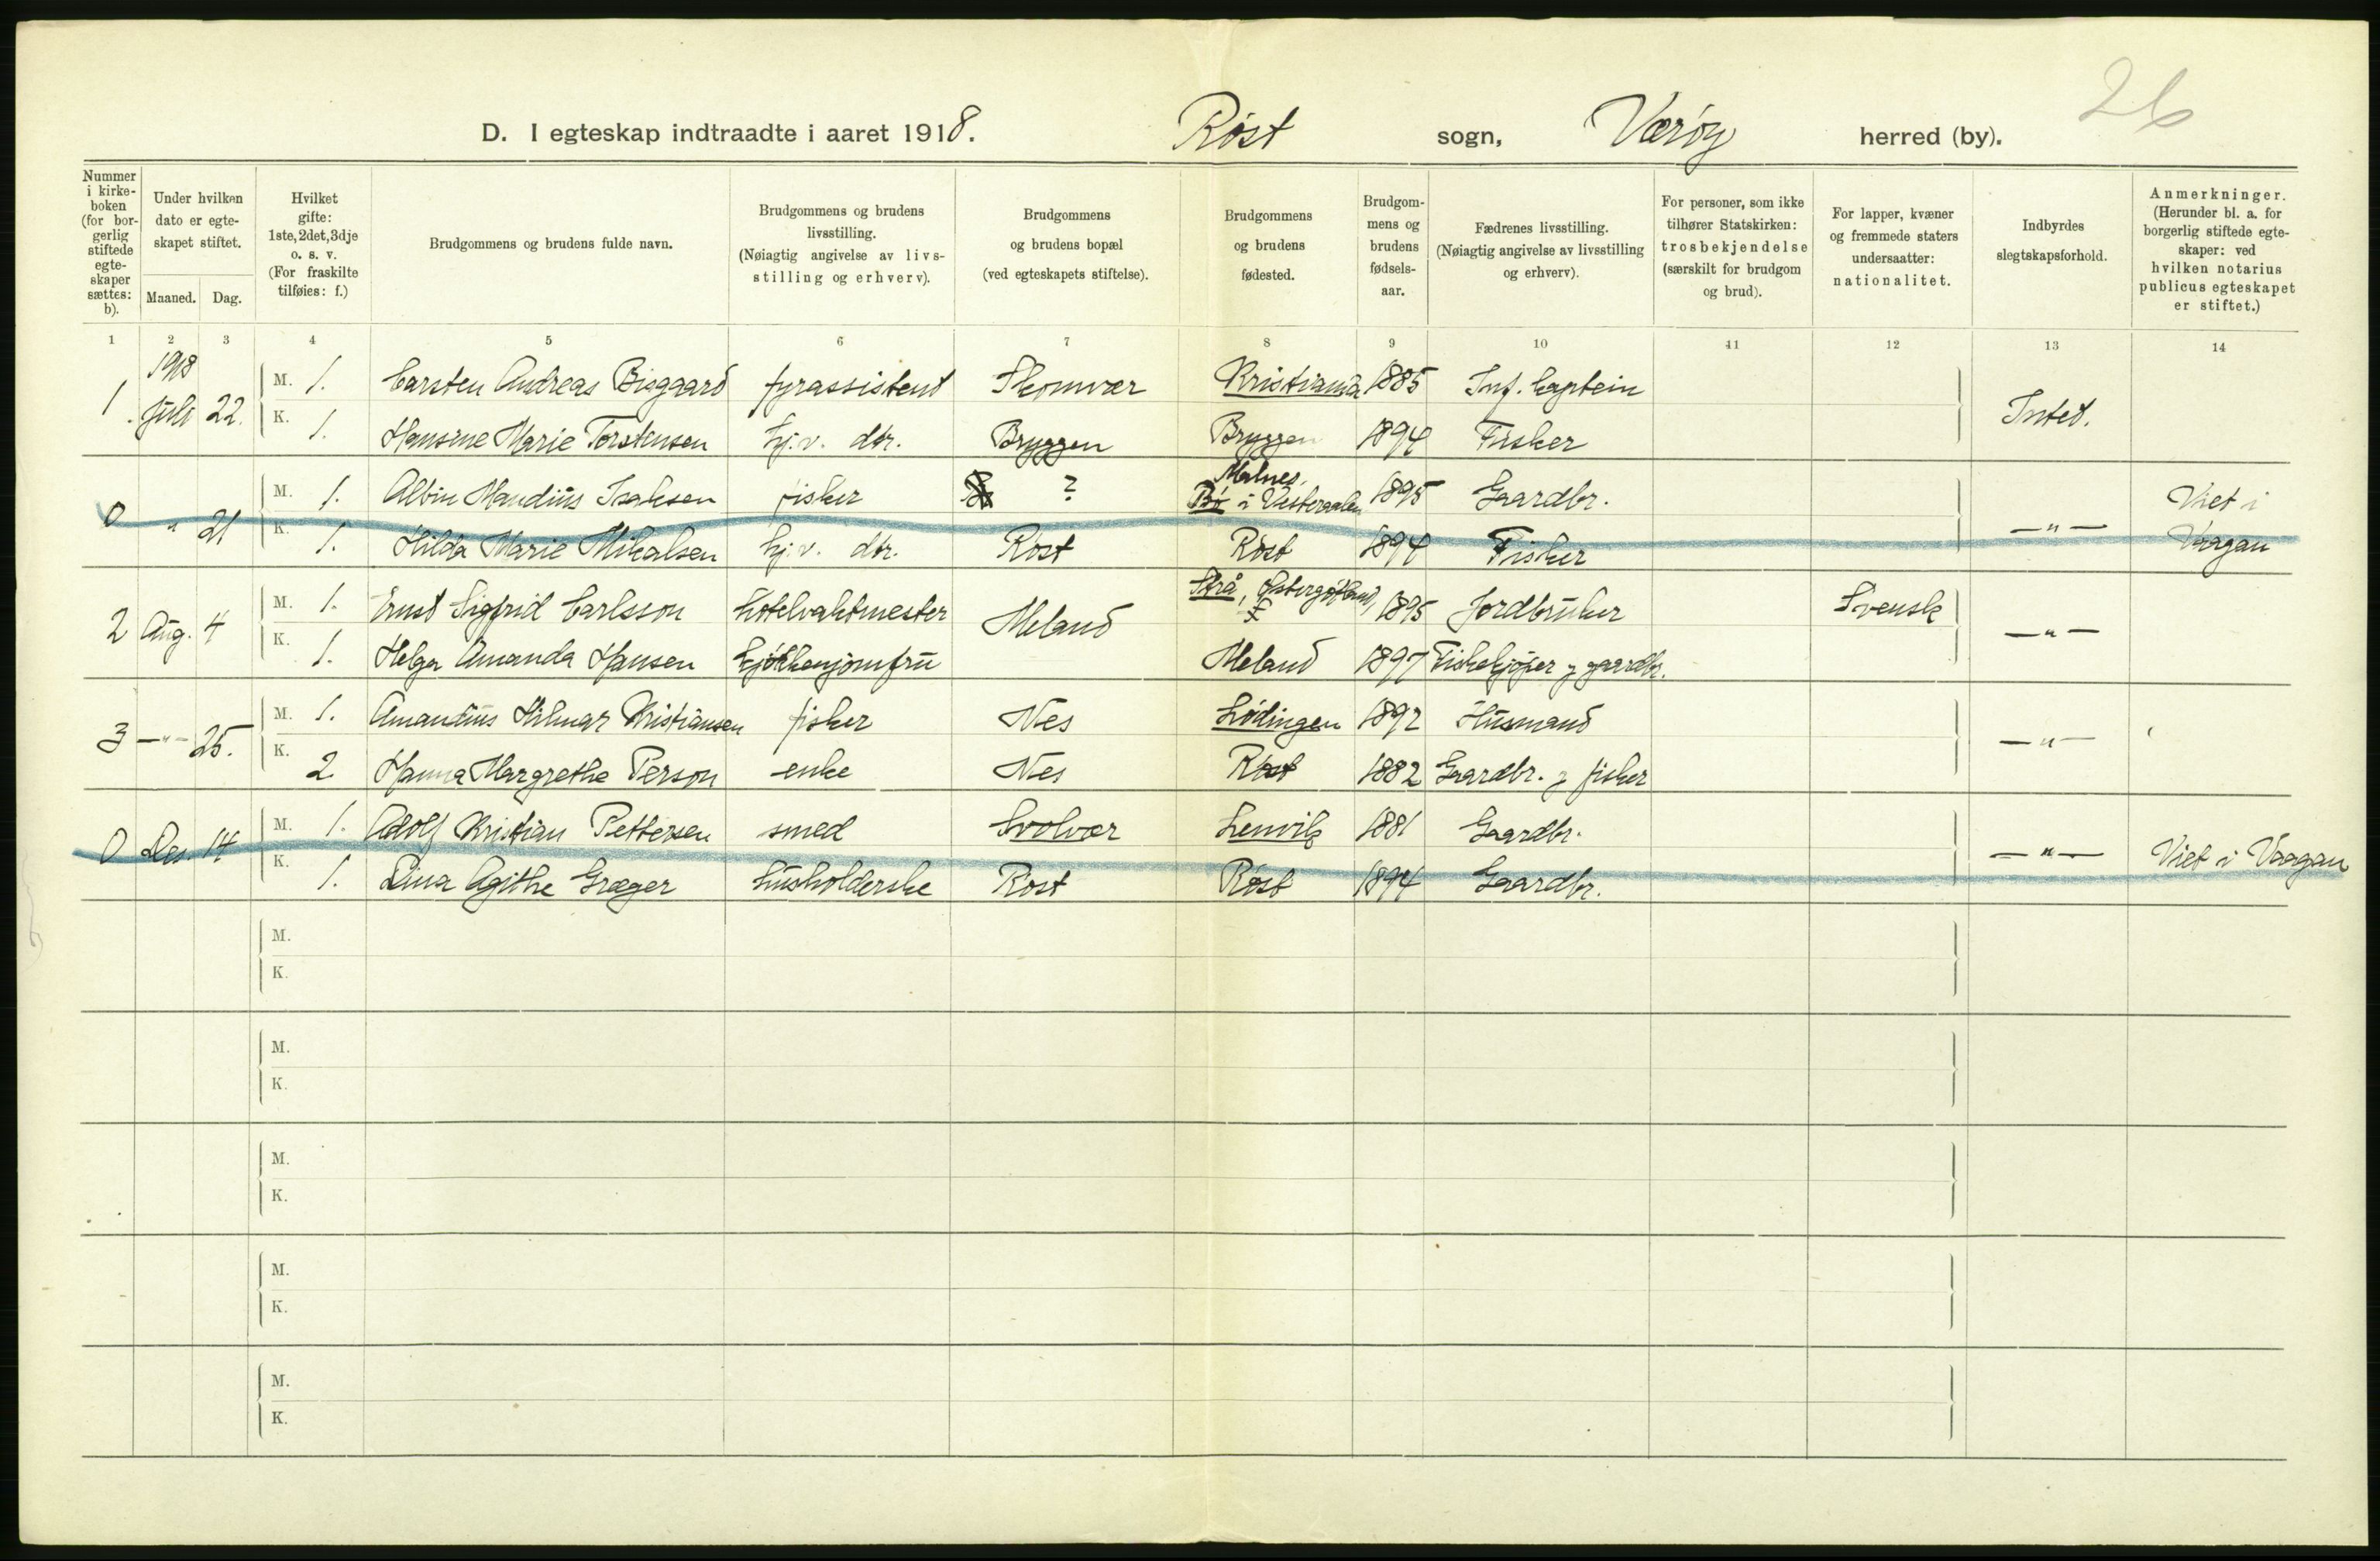 26
D. I egteskap indtraadte i aaret 1918. Röst sogn, Værøy herred (by).
Nummer i kirke- boken (for bor- gerlig stiftede egte- skaper sættes: b).
Under hvilken dato er egte- skapet stiftet.
Maaned. Dag.
Hvilket gifte: 1ste, 2det, 3dje o. s. v. (For fraskilte tilføies: f.)
Brudgommens og brudens fulde navn.
Brudgommens og brudens livsstilling. (Nøiagtig angivelse av livs- stilling og erhverv).
Brudgommens og brudens bopæl (ved egteskapets stiftelse).
Brudgommens og brudens fødested.
Brudgom- mens og brudens fødsels- aar.
Fædrenes livsstilling. (Nøiagtig angivelse av livsstilling og erhverv).
For personer, som ikke tilhører Statskirken: trosbekjendelse (særskilt for brudgom og brud).
For lapper, kvæner og fremmede staters undersaatter: nationalitet.
Indbyrdes slegtskapsforhold.
Anmerkninger. (Herunder bl. a. for borgerlig stiftede egte- skaper: ved hvilken notarius publicus egteskapet er stiftet.)
1 2 3 4 5 6 7 8 9 10 11 12 13 14
1918
1. Juli 22. M. 1. Carsten Andreas Bisgaard fyrassistent Skomvær Kristiania 1885 Inf. kaptein Intet.
K. 1. Hansine Marie Torstensen hj. v. dtr. Bryggen Bryggen 1894 Fisker
Malnes,
0 " 21 M. 1. Albin Mandius Isaksen fisker ? Bø i Vesteraalen 1895 Gaardbr. —"— Viet i
K. 1. Hilda Marie Mikalsen hj. v. dtr. Röst Röst 1894 Fisker Vaagan
2 Aug. 4 M. 1. Ernst Sigfrid Carlsson hotelvaktmester Meland Strå, Østergøtland, 1895 Jordbruker Svensk —"—
K. 1. Helga Amanda Hansen kjøkkenjomfru Meland 1897 Fiskekjøper og gaardbr.
3 —"— 25. M. 1. Amandus Hilmar Kristiansen fisker Nes Lødingen 1892 Husmand —"—
K. 2 Hanna Margrethe Person enke Nes Röst 1882 Gaardbr. og fisker
0 Des. 14 M. 1. Adolf Kristian Pettersen smed Svolvær Lenvik 1881 Gaardbr. —"— Viet i Vaagan
K. 1. Lina Agithe Græger husholderske Röst Röst 1894 Gaardbr.
M.
K.
M.
K.
M.
K.
M.
K.
M.
K.